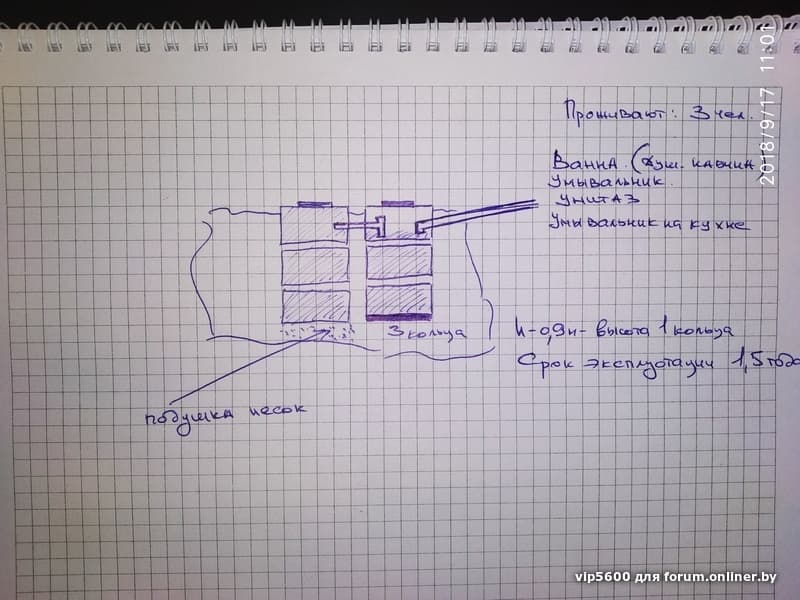 Проживают: 3 чел.
Ванна (душ. кабина)
Умывальник
Унитаз
Умывальник на кухне
3 кольца
h-0,9м- высота 1 кольца
Срок эксплуотации 1,5 года
подушка песок
2018/9/17 11:01
vip5600 для forum.onliner.by